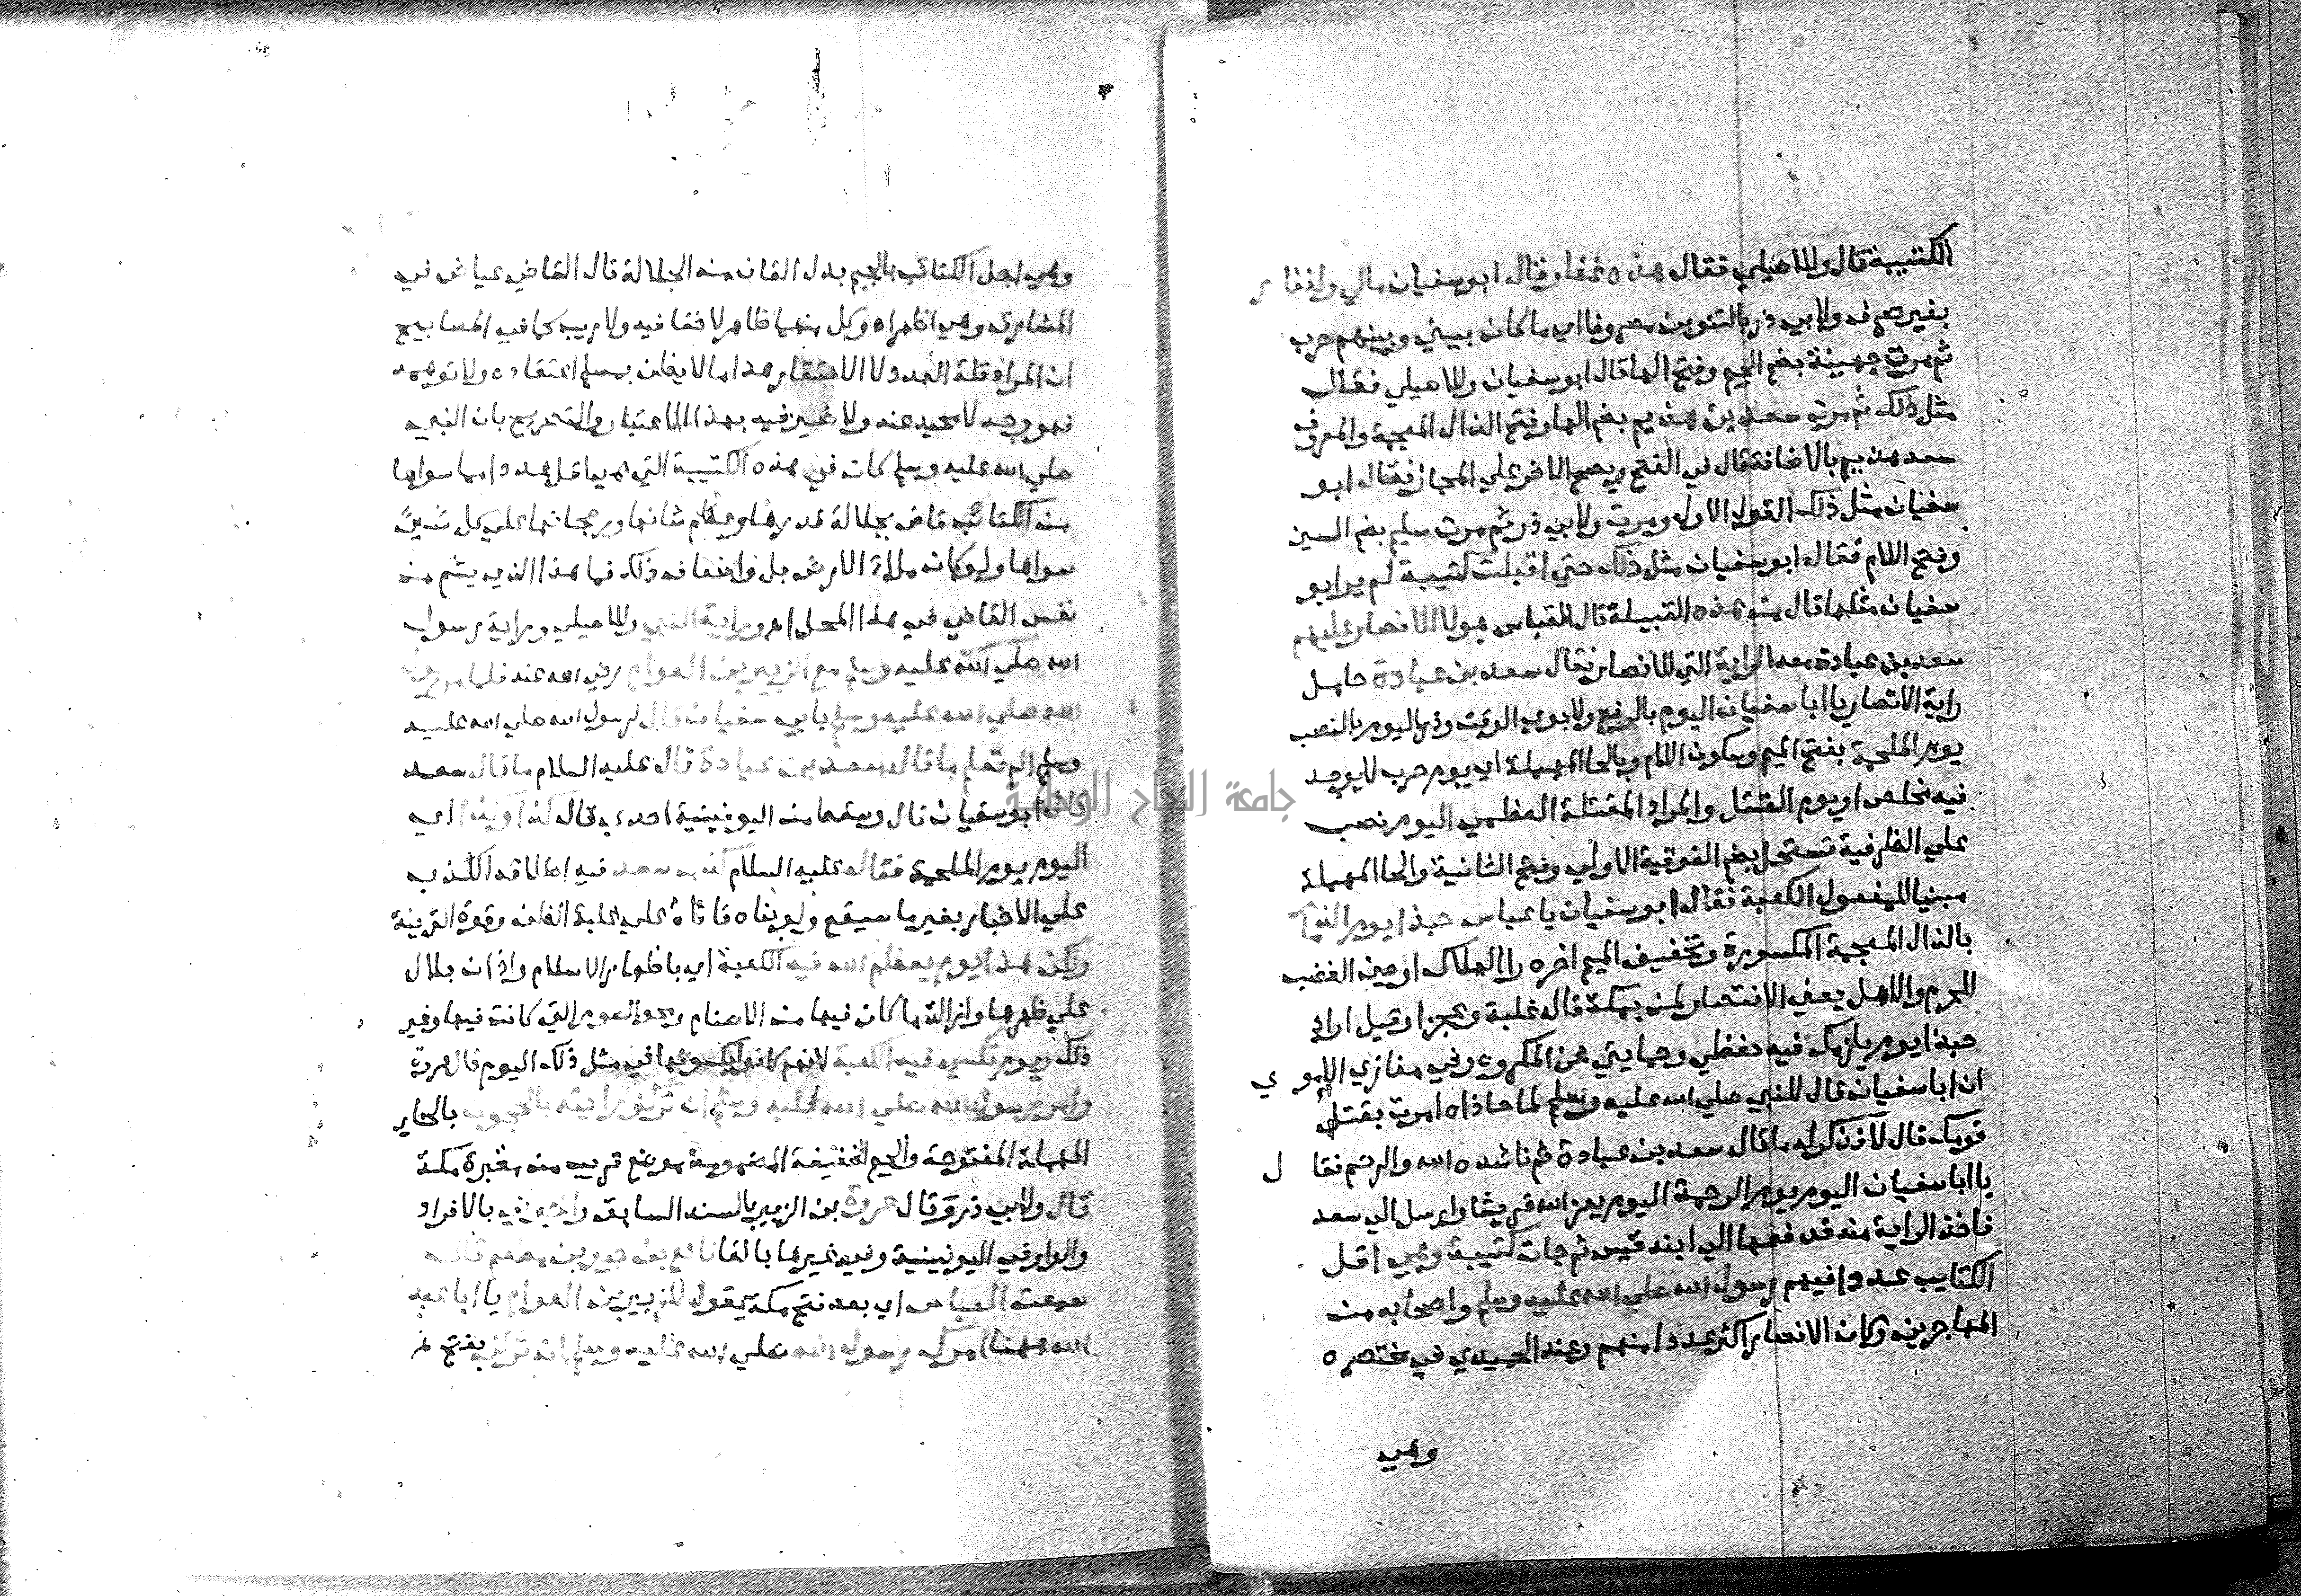 الكتيبة قال وللاصيلي فقال هذه غفار قال ابو سفيان مالي ولغفار
بغير صرف ولابي ذر بالتنوين مصروفا اي ما كان بيني وبينهم حرب
ثم مرت جهينة بضم الجيم وفتح الها قال ابو سفيان وللاصيلي فقال
مثل ذلك ثم مرت سعد بن هذيم بضم الها وفتح الذال المعجمة والمعروف
سعد هذيم بالاضافة قال في الفتح ويصح الاخر علي المجاز فقال ابو
سفيان مثل ذلك القول الاول ومرت ولابي ذر ثم مرت سليم بضم السين
وفتح اللام فقال ابو سفيان مثل ذلك حتي اقبلت كتيبة لم ير ابو
سفيان مثلها قال من هذه القبيلة قال العباس هولا الانصار عليهم
سعد بن عبادة معه الراية التي للانصار فقال سعد بن عبادة حامل
راية الانصار يا ابا سفيان اليوم بالرفع ولابوي الوقت وذر اليوم بالنصب
يوم الملحمة بفتح الميم وسكون اللام وبالحا المهملة اي يوم حرب لا يوجد
فيه مخلص او يوم القتل والمراد المقتلة العظمي اليوم نصب
علي الظرفية تستحل بضم الفوقية الاولي وفتح الثانية والحا المهملة
مبنيا للمفعول الكعبة فقال ابو سفيان يا عباس حبذا يوم الذمار
بالذال المعجمة المكسورة وتخفيف الميم اخره را الهلاك او حين الغضب
للحرم والاهل يعني الانتصار لمن بمكة قاله غلبة وعجزا وقيل اراد
حبذا يوم يلزمك فيه حفظي وحمايتي عن المكروه وفي مغازي الاموي
ان ابا سفيان قال للنبي صلي الله عليه وسلم لما حاذاه امرت بقتل
قومك قال لا فذكر له ما قال سعد بن عبادة ثم ناشده الله والرحم فقال
يا ابا سفيان اليوم يوم الرحمة اليوم يعز الله قريشا وارسل الي سعد
فاخذ الراية منه فدفعها الي ابنه قيس ثم جات كتيبة وهي اقل
الكتايب عددا فيهم رسول الله صلي الله عليه وسلم واصحابه من
المهاجرين وكان الانصار اكثر عددا منهم وعند الحميدي في مختصره
وهي
وهي اجل الكتائب بالجيم بدل القاف من الجلالة قال القاضي عياض في
المشارق وهي اظهر اه وكل منهما ظاهر لا خفا فيه ولا ريب كما في المصابيح
ان المراد قلة العدد لا الاحتقار هذا ما لا يظن بمسلم اعتقاده ولا توهمه
فهو وجه لا محيد عنه ولا ضير فيه بهذا الاعتبار والتصريح بان النبي
صلي الله عليه وسلم كان في هذه الكتيبة التي هي اقل عددا مما سواها
من الكتائب قاض بجلالة قدرها وعظم شانها ورجحانها علي كل شي
سواها ولو كان ملأ الارض بل واضعاف ذلك فما هذا الذي يشم من
نفس القاضي في هذا المحل اه وراية النبي وللاصيلي وراية رسول
الله صلي الله عليه وسلم مع الزبير بن العوام رضي الله عنه فلما مر رسول
الله صلي الله عليه وسلم بابي سفيان قال لرسول الله صلي الله عليه
وسلم الم تعلم ما قال سعد بن عبادة قال عليه السلام ما قال سعد
قال ابو سفيان قال وسقط من اليونينية احدى قال كذا وكذا اي
اليوم يوم الملحمة فقال عليه السلام كذب سعد فيه اطلاق الكذب
علي الاخبار بغير ما سيقع ولو بناه قائله علي غلبة الظن وقوة القرينة
ولكن هذا يوم يعظم الله فيه الكعبة اي باظهار الاسلام واذان بلال
علي ظهرها وازالة ما كان فيها من الاصنام ومحو الصور التي كانت فيها وغير
ذلك ويوم تكسي فيه الكعبة لانهم كانوا يكسونها في مثل ذلك اليوم قال عروة
وامر رسول الله صلي الله عليه وسلم ان تركز رايته بالحجون بالحا
المهملة المفتوحة والجيم الخفيفة المضمومة موضع قريب من مقبرة مكة
قال ولابي ذر وقال عروة بن الزبير بالسند السابق واخبرني بالافراد
والواو في اليونينية وفي غيرها بالفا نافع بن جبير بن مطعم قال
سمعت العباس اي بعد فتح مكة يقول للزبير بن العوام يا ابا عبد
الله ههنا امرك رسول الله صلي الله عليه وسلم ان تركز بفتح
جامعة النجاح الوطنية